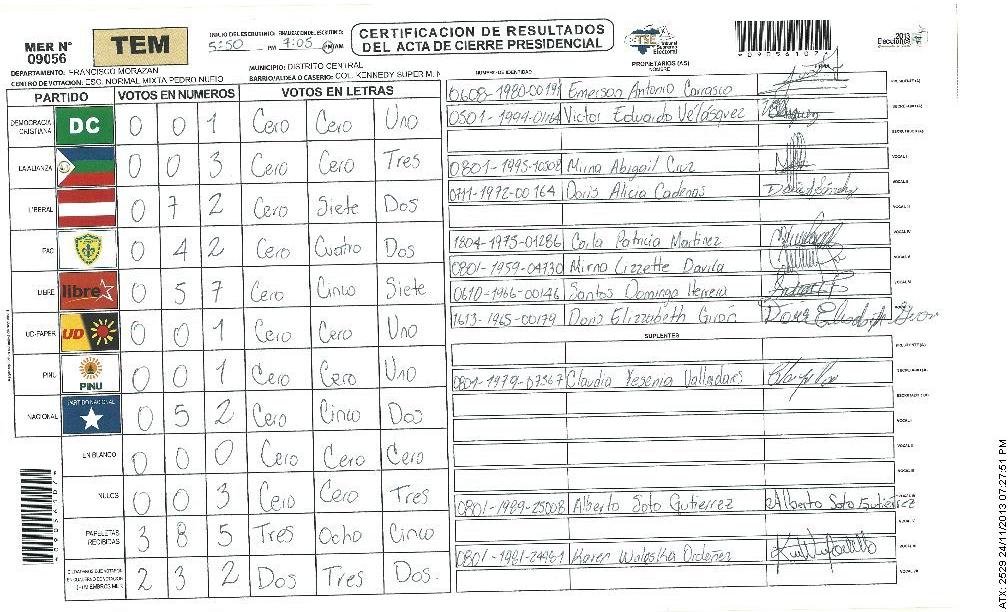 MER N° 09056
TEM
INICIO DEL ESCRUTINIO: FINALIZACION DEL ESCRUTINIO:
5:50 PM 7:05 PM AM
CERTIFICACION DE RESULTADOS
DEL ACTA DE CIERRE PRESIDENCIAL
TSE Tribunal Supremo Electoral
2013 Elecciones
DEPARTAMENTO: FRANCISCO MORAZAN
MUNICIPIO: DISTRITO CENTRAL
CENTRO DE VOTACION: ESC. NORMAL MIXTA PEDRO NUFIO
BARRIO/ALDEA O CASERIO: COL. KENNEDY SUPER M. N
PARTIDO VOTOS EN NUMEROS VOTOS EN LETRAS
DEMOCRACIA CRISTIANA DC 0 0 1 Cero Cero Uno
LA ALIANZA 0 0 3 Cero Cero Tres
LIBERAL 0 7 2 Cero Siete Dos
PAC 0 4 2 Cero Cuatro Dos
LIBRE libre 0 5 7 Cero Cinco Siete
UD-FAPER UD 0 0 1 Cero Cero Uno
PINU PINU 0 0 1 Cero Cero Uno
NACIONAL PARTIDO NACIONAL 0 5 2 Cero Cinco Dos
EN BLANCO 0 0 0 Cero Cero Cero
NULOS 0 0 3 Cero Cero Tres
PAPELETAS RECIBIDAS 3 8 5 Tres Ocho Cinco
2 3 2 Dos Tres Dos.
NUMERO DE IDENTIDAD PROPIETARIOS (AS) NOMBRE
0608-1980-00191 Emerson Antonio Carrasco
0501-1999-01164 Victor Eduardo Velásquez
0801-1995-10508 Mirna Abigail Cruz
0711-1972-00164 Doris Alicia Cadenas
1804-1975-01286 Carla Patricia Martinez
0801-1959-04730 Mirna Lizzette Davila
0610-1966-00146 Santos Domingo Herrera
1613-1965-00179 Doris Elizzabeth Girón
SUPLENTES
0801-1979-07367 Claudia Yesenia Valladares
0801-1989-25008 Alberto Soto Gutierrez Alberto Soto Gutierrez
0801-1981-24461 Karen Waleska Ordoñez
ATX: 2529 24/11/2013 07:27:51 PM